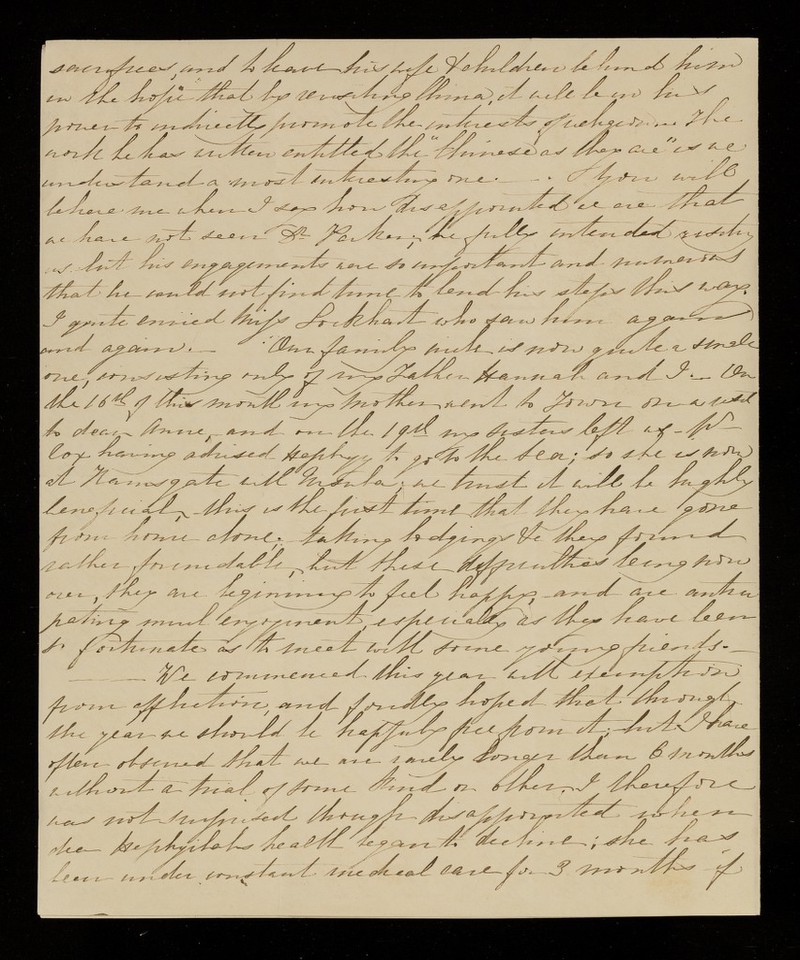 sacrifices, and to leave his wife & children behind him
in the hope that by revisiting China, it will be in his
power to indirectly promote the interests of religion. The
work he has written entitled the "Chinese as they are" is we
understand a most interesting one. — . You will
believe me when I say how disappointed we are that
we have not seen Dr Parker, he fully intended visiting
us but his engagements were so important and numerous
that he could not find time to bend his steps this way.
I quite envied Miss Lockhart who saw him again
and again. — Our family circle is now quite a small
one, consisting only of my Father Hannah and I. — On
the 16th of this month my Mother went to Town on a visit
to dear Anne, and on the 19th my sisters left us - Mr
Cox having advised to go to the sea; so she is now
at Ramsgate with we trust it will be highly
beneficial, this is the first time that they have gone
from home alone; taking lodgings &c they found
rather formidable, but these difficulties being now
over, they are beginning to feel happy, and are antici
pating much enjoyment, especially as they have been
so fortunate as to meet with some young friends. —
— We commenced this year with exemption
from affliction, and fondly hoped that through
the year we should be happily free from it; but I have
often observed that we are rarely longer than 6 months
without a trial of some kind or other, I therefore
was not surprised though disappointed when
dear health began to decline; she has
been under constant medical care for 3 months if